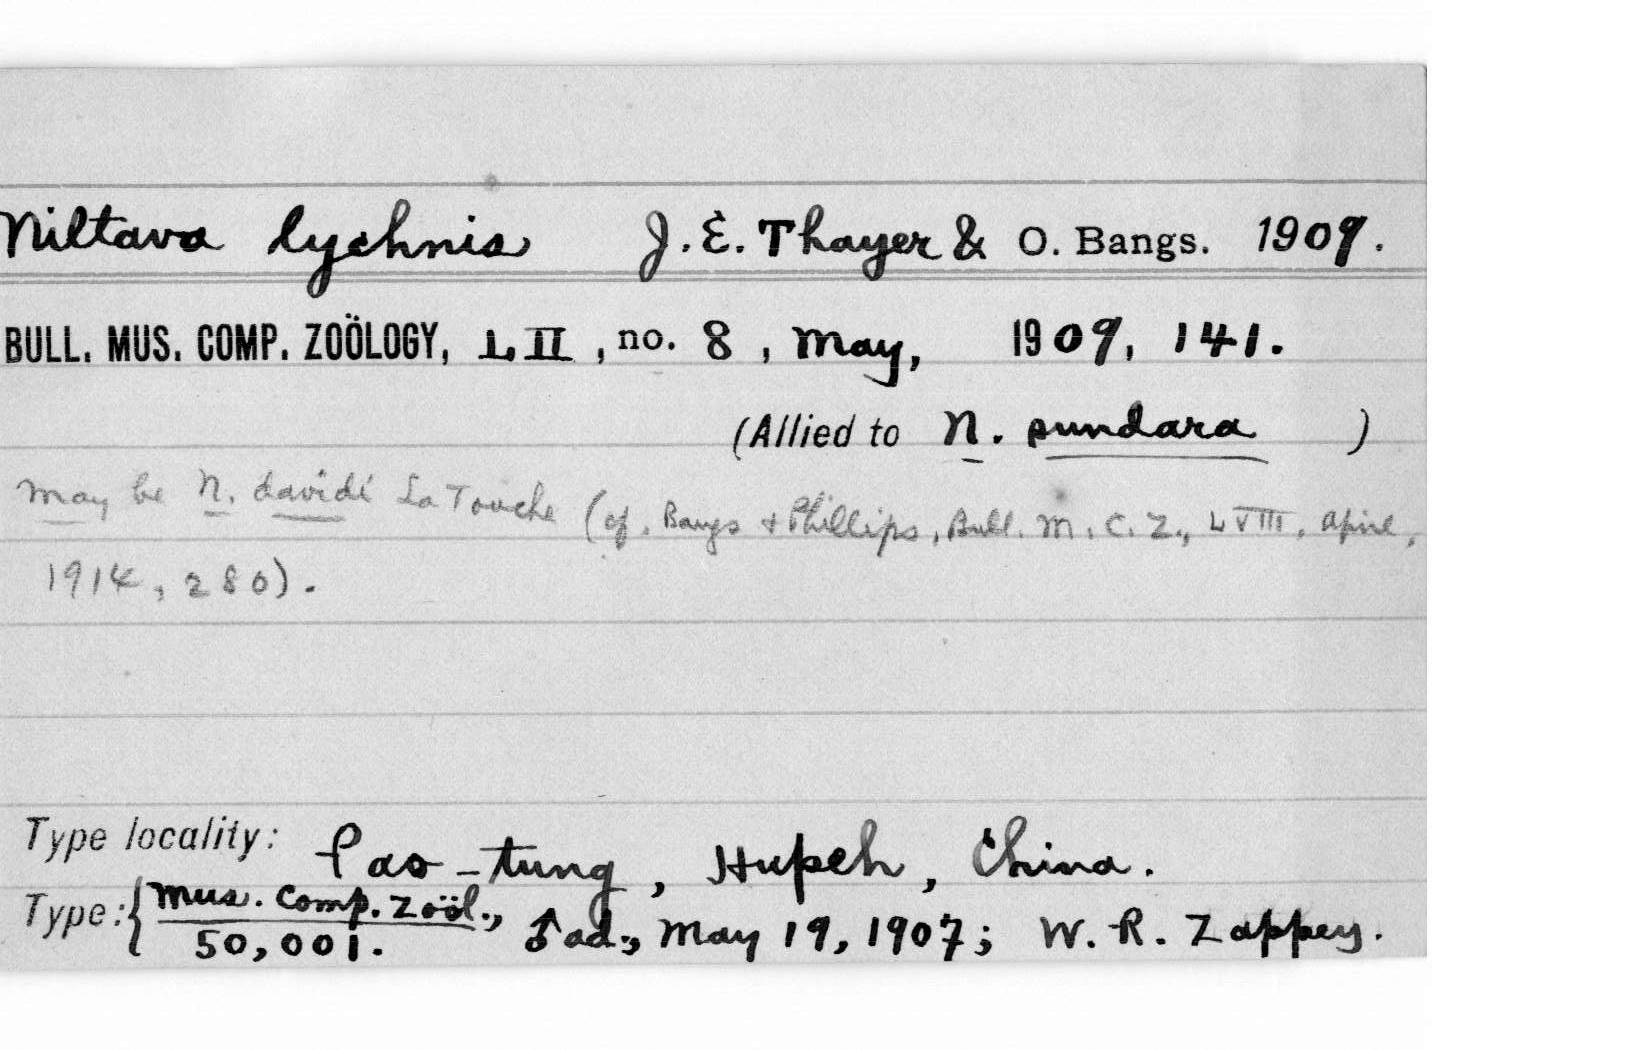 Niltava lychnis J. E. Thayer & O. Bangs. 1909.
BULL. MUS. COMP. ZOÖLOGY, LII, no. 8, May, 1909, 141.
(Allied to N. sundara )
May be N. davidi La Touche (cf. Bangs & Phillips, Bull. M. C. Z., LVIII, April,
1914, 280).
Type locality: Pao-tung, Hupeh, China.
Type: { Mus. Comp. Zoöl., ♂ ad., May 19, 1907; W. R. Zappey.
50,001.